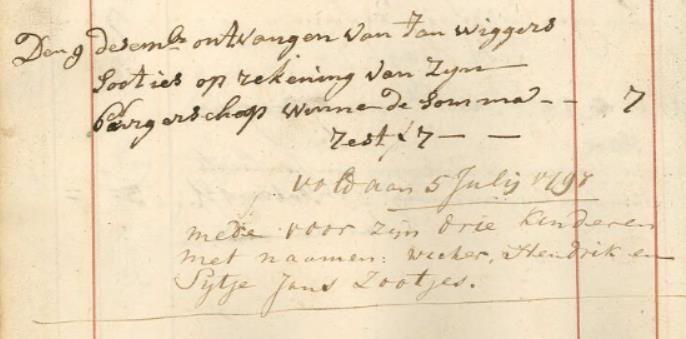 Den 9 desembr ontvangen van Jan Wiggers
Sooties op rekening van zyn
borgerschop winne de Somma - - 7
rest f 7 - -
voldaan 5 Julij 1798
mede voor zijn drie kinderen
met naamen: wicher, Hendrik en
Sytje Jans Zootjes.